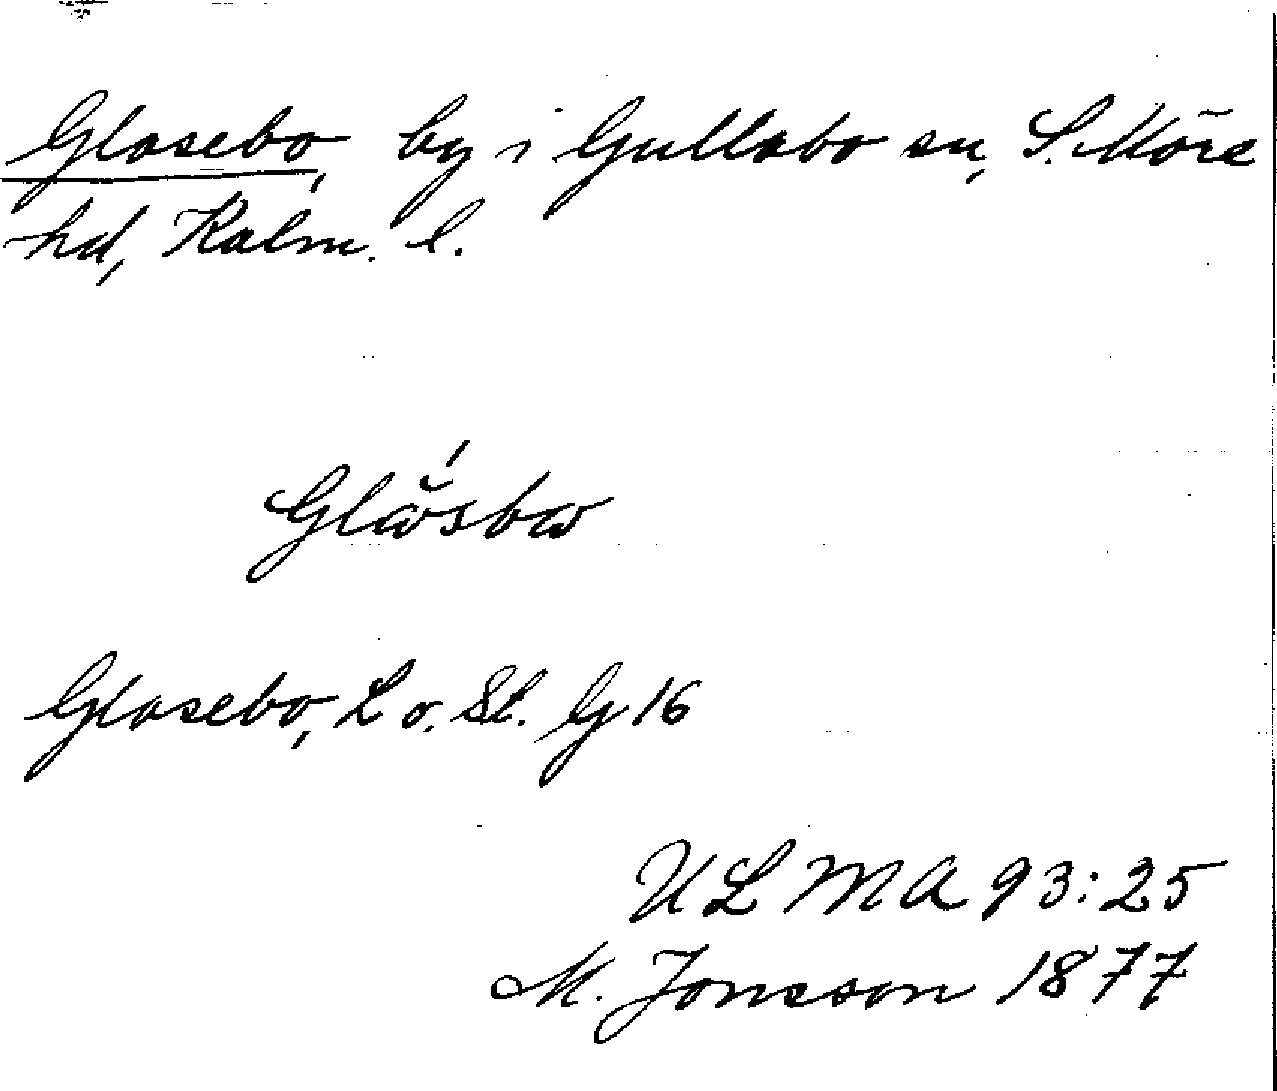 Glasebo, by i Gullabo sn, S. Möre
hd, Kalm. l.
Glasebo, L o. St. G 16
ULMA 93:25
M. Jonsson 1877